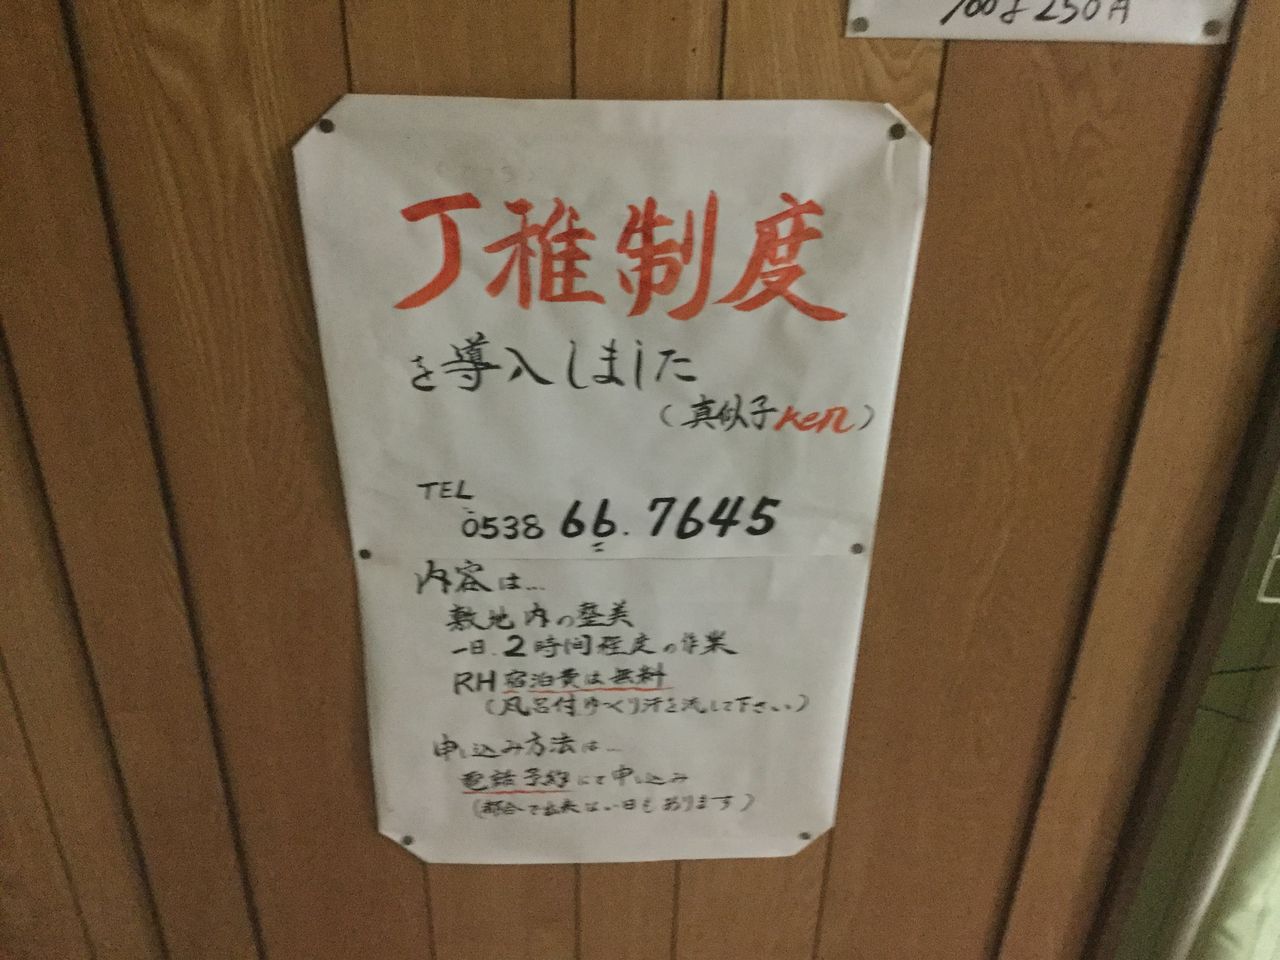 100g 250円
丁稚制度
を導入しました
(真似子Ken)
TEL
0538 66.7645
内容は…
敷地内の整美
一日.2時間程度の作業
RH宿泊費は無料
(風呂付ゆっくり汗を流して下さい)
申し込み方法は…
電話予約にて申し込み
(都合で出来ない日もあります)